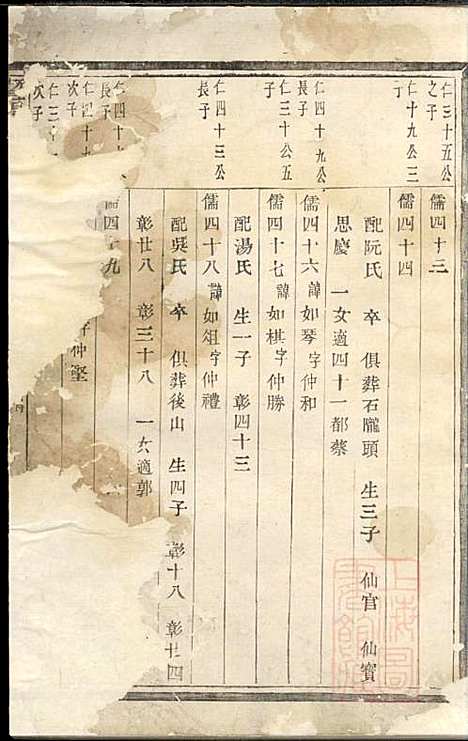 仁三十五公
之子
儒四十三
仁十九公三
子
儒四十四
配阮氏 卒 俱葬石隴頭 生三子 仙官 仙寶
思慶 一女適四十一都蔡
仁四十九公
長子
儒四十六 諱如琴字仲和
仁三十公五
子
儒四十七 諱如棋字仲勝
配湯氏 生一子 彰四十三
仁四十三公
長子
儒四十八 諱如俎字仲禮
配吳氏 卒 俱葬後山 生四子 彰十八 彰廿四
彰廿八 彰三十八 一女適郭
仁四十
長子
四十九
仁四十九
次子
仲壑
仁三
次子
上海圖